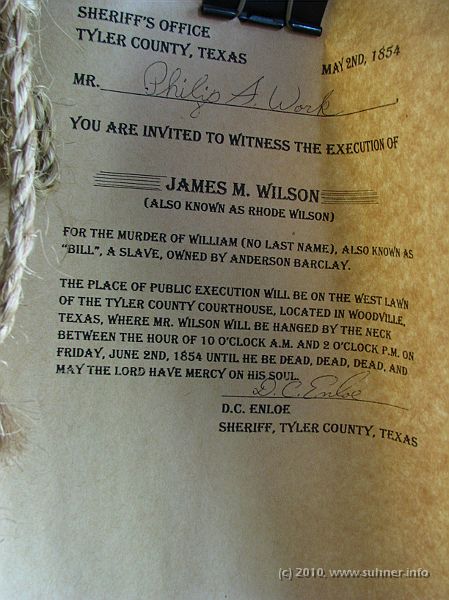 SHERIFF'S OFFICE
TYLER COUNTY, TEXAS
MAY 2ND, 1854
MR. Philip A. Work
YOU ARE INVITED TO WITNESS THE EXECUTION OF
JAMES M. WILSON
(ALSO KNOWN AS RHODE WILSON)
FOR THE MURDER OF WILLIAM (NO LAST NAME), ALSO KNOWN AS
"BILL", A SLAVE, OWNED BY ANDERSON BARCLAY.
THE PLACE OF PUBLIC EXECUTION WILL BE ON THE WEST LAWN
OF THE TYLER COUNTY COURTHOUSE, LOCATED IN WOODVILLE,
TEXAS, WHERE MR. WILSON WILL BE HANGED BY THE NECK
BETWEEN THE HOUR OF 10 O'CLOCK A.M. AND 2 O'CLOCK P.M. ON
FRIDAY, JUNE 2ND, 1854 UNTIL HE BE DEAD, DEAD, DEAD, AND
MAY THE LORD HAVE MERCY ON HIS SOUL.
D.C. Enloe
D.C. ENLOE
SHERIFF, TYLER COUNTY, TEXAS
(c) 2010, www.suhner.info